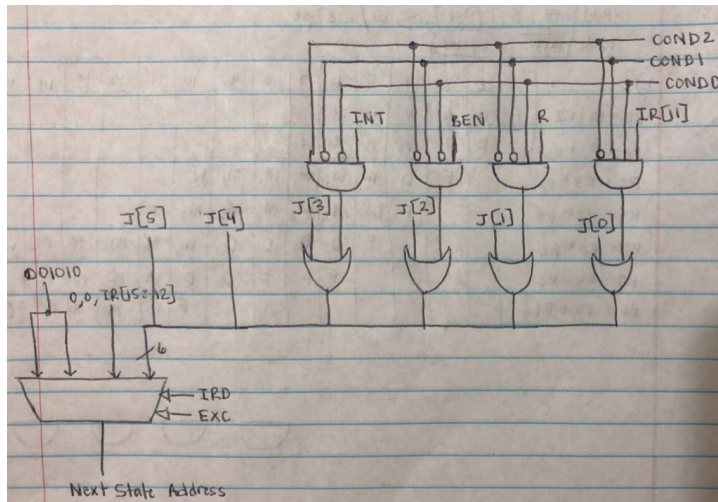 COND2
COND1
COND0
INT
BEN
R
IR[11]
J[5]
J[4]
J[3]
J[2]
J[1]
J[0]
001010
0,0,IR[15:12]
6
IRD
EXC
Next State Address